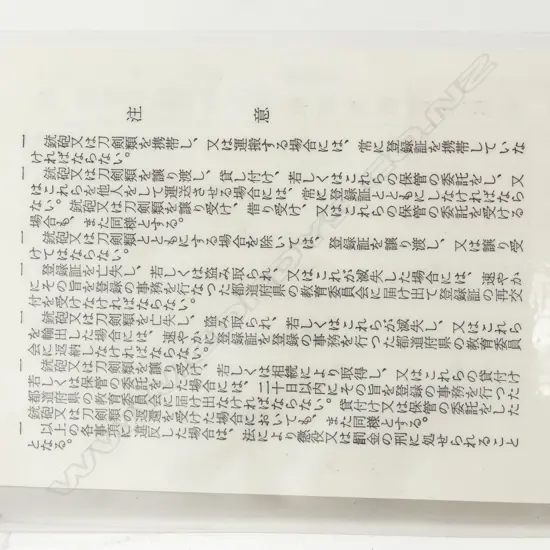 注意
一 銃砲又は刀剣類を携帯し、又は運搬する場合には、常に登録証を携帯していな
ければならない。
一 銃砲又は刀剣類を譲り渡し、貸し付け、若しくはこれらの保管の委託をし、又
はこれらを他人をして運送させる場合には、常に登録証とともにしなければなら
ない。銃砲又は刀剣類を譲り受け、借り受け、又はこれらの保管の委託を受ける
場合も、また同様とする。
一 銃砲又は刀剣類とともにする場合を除いては、登録証を譲り渡し、又は譲り受
けてはならない。
一 登録証を亡失し、若しくは盗み取られ、又はこれが滅失した場合には、速やか
にその旨を登録の事務を行なった都道府県の教育委員会に届け出て登録証の再交
付を受けなければならない。
一 銃砲又は刀剣類を亡失し、盗み取られ、若しくはこれらが滅失し、又はこれら
を輸出した場合には、速やかに登録証を登録の事務を行った都道府県の教育委員
会に返納しなければならない。
一 銃砲又は刀剣類を譲り受け、若しくは相続により取得し、又はこれらの貸付け
若しくは保管の委託をした場合には、二十日以内にその旨を登録の事務を行った
都道府県の教育委員会に届け出なければならない。貸付け又は保管の委託をした
銃砲又は刀剣類の返還を受けた場合においても、また同様とする。
一 以上の各事項に違反した場合は、法により懲役又は罰金の刑に処せられること
となる。